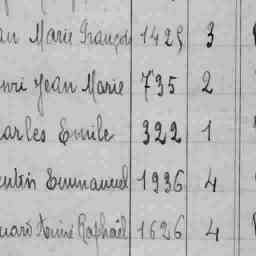 an Marie François 1425 3
nri Jean Marie 735 2
arles Emile 322 1
entin Emmanuel 1936 4
uard Aimé Raphaël 1626 4